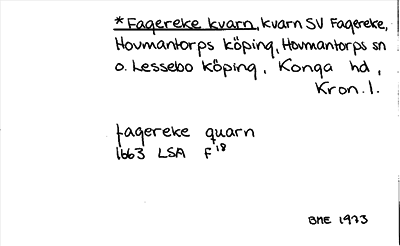 *Fagereke kvarn, kvarn SV Fagereke,
Hovmantorps köping, Hovmantorps sn
o. Lessebo köping, Konga hd,
Kron. l.
fagereke quarn
1663 LSA F¹⁸
BME 1973